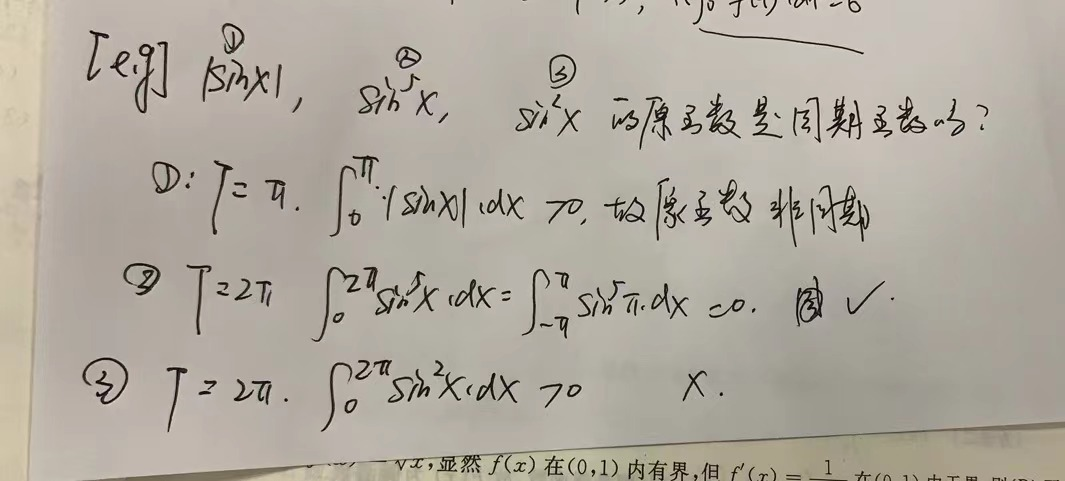 [e.g] ①|sinx|, ②sin⁵x, ③sin²x 的原函数是周期函数吗?
①: T=π. ∫₀^π |sinx|·dx >0, 故原函数非周期
② T=2π ∫₀^2π sin⁵x·dx = ∫₋π^π sin⁵π·dx =0. 周 ✓.
③ T=2π. ∫₀^2π sin²x·dx >0 ×.
√x,显然 f(x)在(0,1)内有界,但 f′(x)= 1